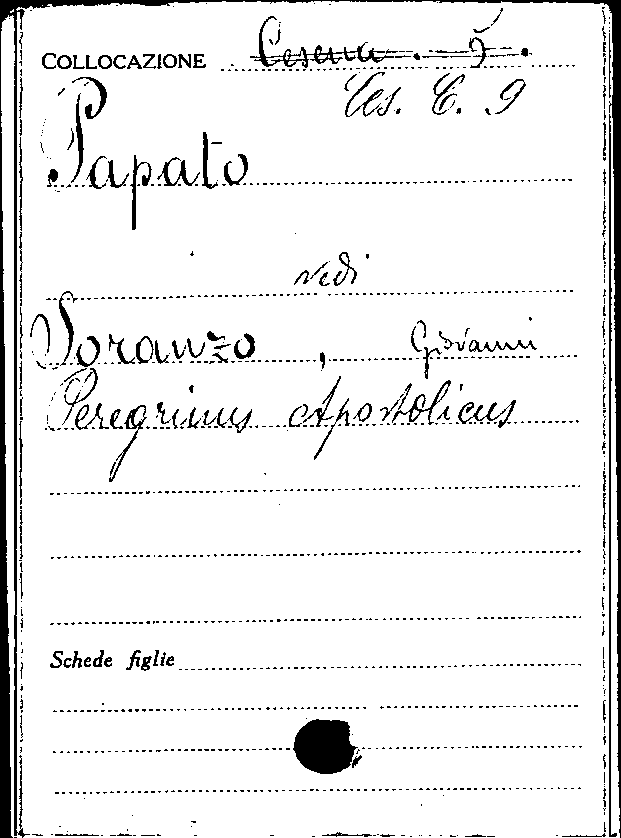 COLLOCAZIONE Cesena. 5.
Ces. C. 9
Papato
vedi
Soranzo, Giovanni
Peregrinus Apostolicus
Schede figlie